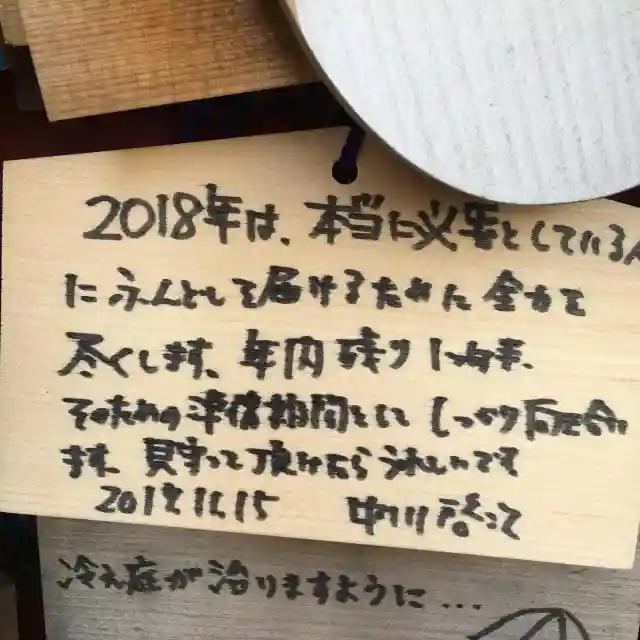 2018年は、本当に必要としている人
に ふんどしを届けるために 全力を
尽くします、年内残り1ヶ月半、
そのための準備期間として しっかり向き合い
ます、見守って頂けたらうれしいです
2017.11.15 中川 啓って
冷え症が治りますように...